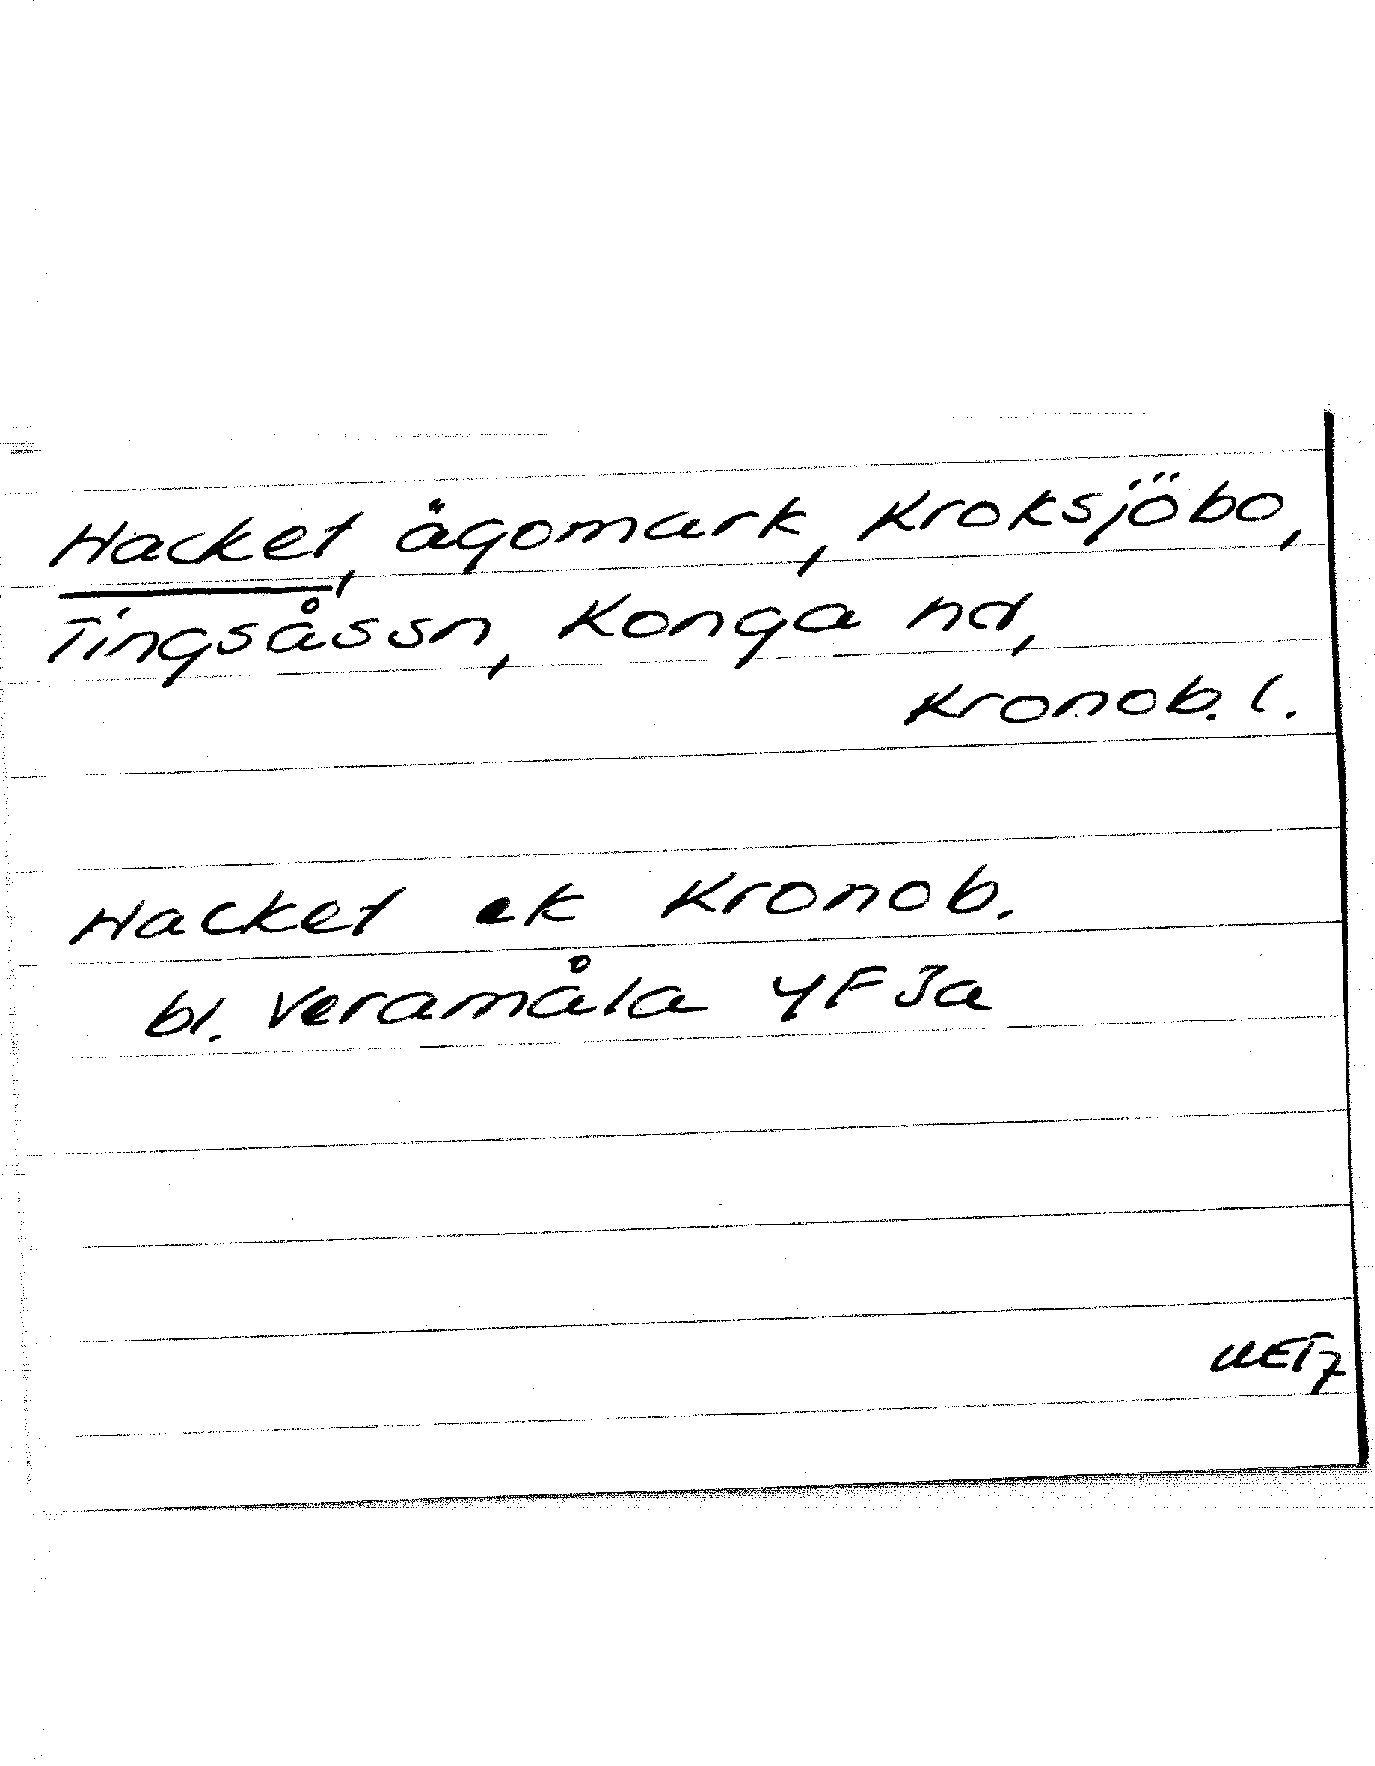 Hacket, ägomark, Kroksjöbo,
Tingsås sn, Konga hd,
Kronob. l.
Hacket ek Kronob.
bl. Veramåla 4F Ja